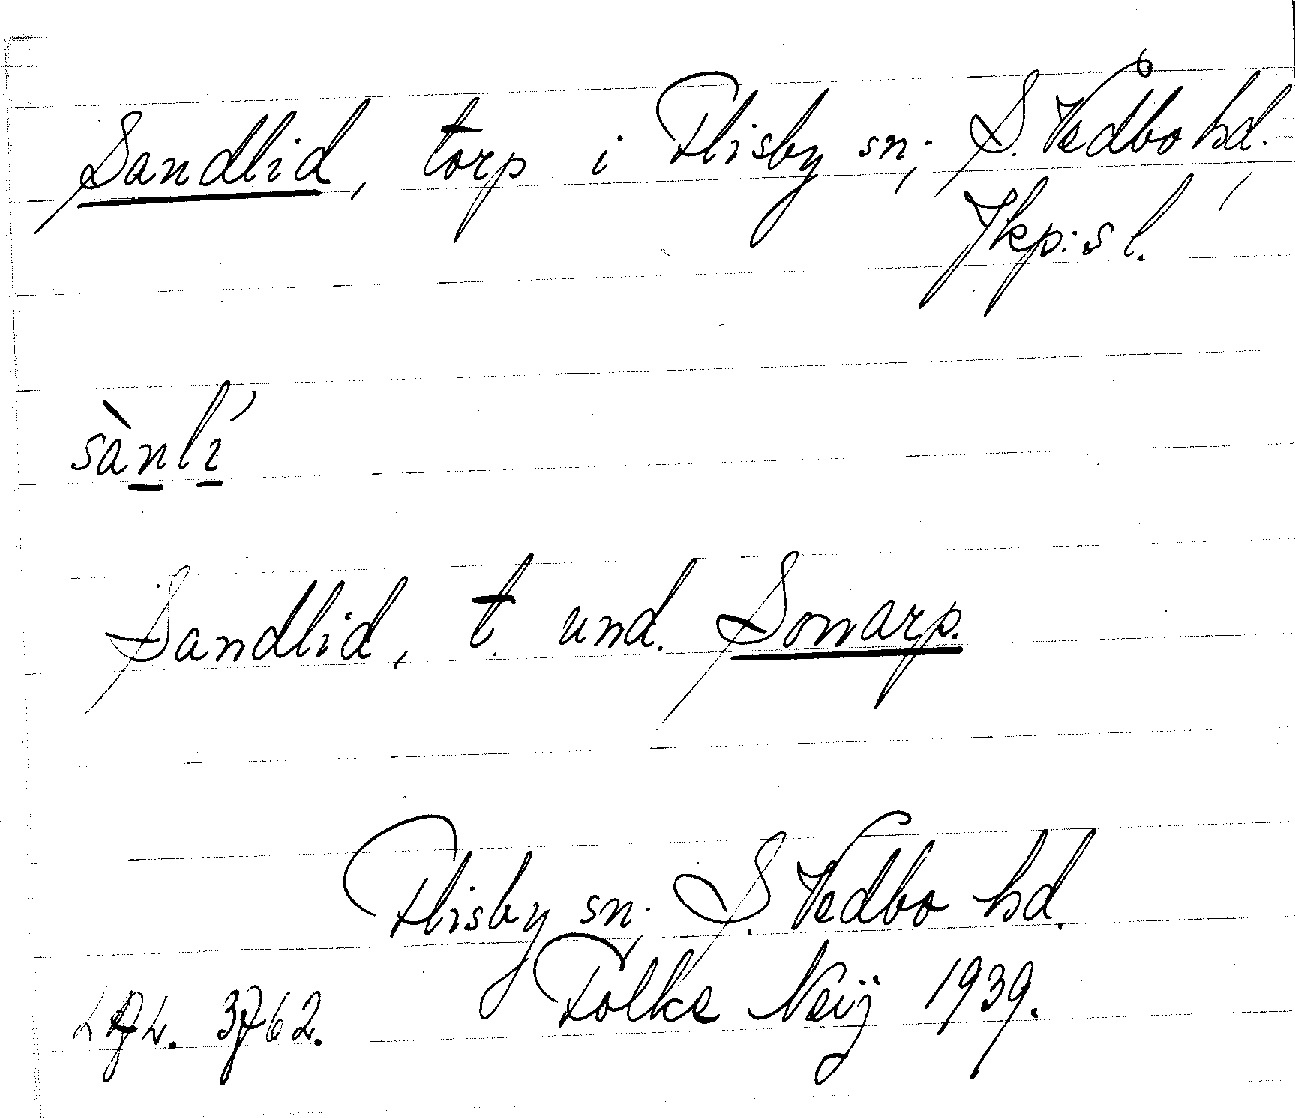 Sandlid, torp i Flisby sn, S. Vedbo hd.,
Jkp:s l.
sànlí
Sandlid, t. und. Sonarp.
Flisby sn, S. Vedbo hd.
Folke Neij 1939.
3762.